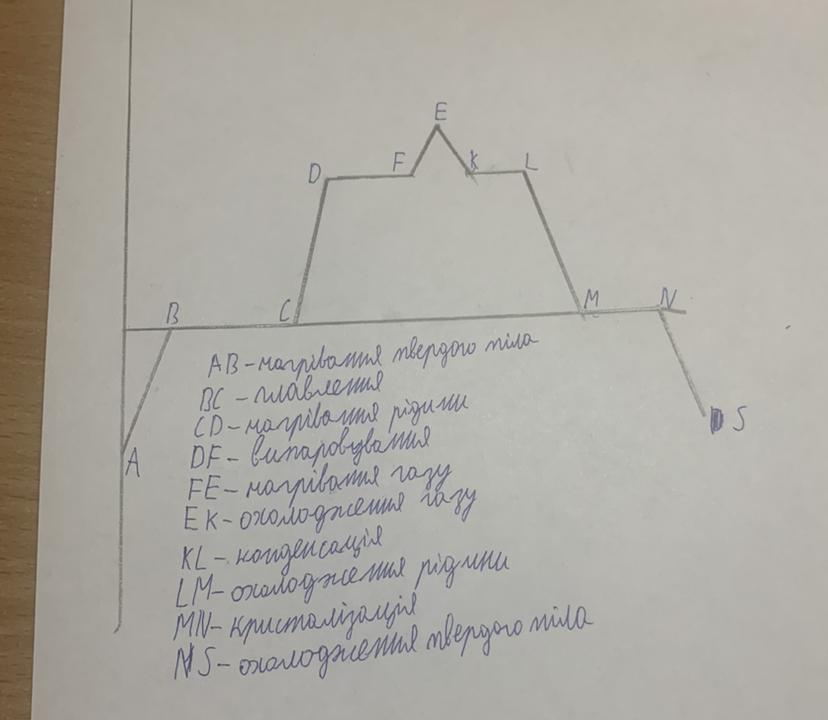 E
D F K L
B C M N
AB - нагрівання твердого тіла
BC - плавлення
CD - нагрівання рідини
DF - випаровування
A
S
FE - нагрівання газу
EK - охолодження газу
KL - конденсація
LM - охолодження рідини
MN - кристалізація
NS - охолодження твердого тіла